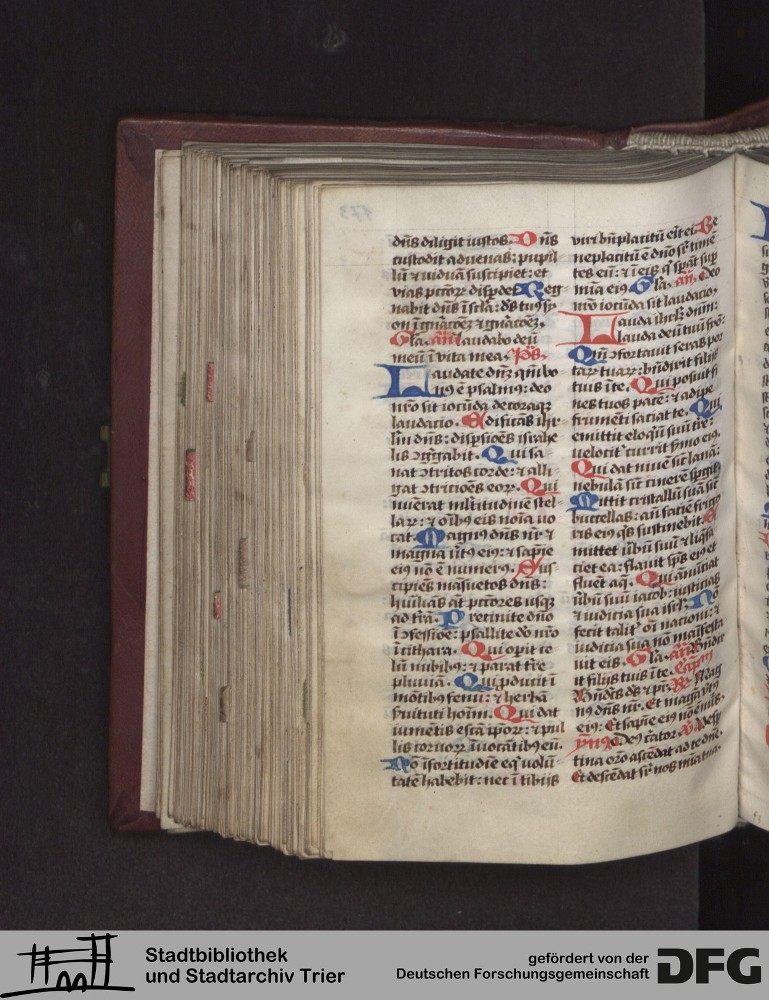 dn̄s diligit iustos. Dn̄s
custodit aduenas: pupil
lū ⁊ viduā suscipiet: et
vias pctōꝝ disꝑdet. Reg
nabit dn̄s ī scl̄a: ds̄ tuꝰ sy
on ī gn̄acōeȝ ⁊ gn̄acōeȝ.
Gl̄a. an̄ Laudabo deū
meū ī vita mea. p̄s.
Laudate dn̄ȝ qm̄ bo
nꝰ ē psalmꝰ: deo
nr̄o sit iocūda decoraqȝ
laudacio. Edificās ihr̄
lm̄ dn̄s: disp̄siōēs israhe
lis ꝯgͤgabit. Qui sa
nat ꝯtritos corde: ⁊ alli
gat ꝯtriciōēs eoꝝ. Qui
nūerat ml̄titudinē stel
laꝝ: ⁊ oībꝰ eis noīa uo
cat. Magnꝰ dn̄s nr̄ ⁊
magna vͥtꝰ eiꝰ: ⁊ sapīe
eiꝰ nō ē numerꝰ. Sus
cipiēs māsuetos dn̄s:
huīliās āt pctōres usqȝ
ad tr̄ā. Precinite dn̄o
ī ꝯfessiōe: psallite dō nr̄o
ī cithara. Qui opit ce
lū nubibꝰ: ⁊ parat tr̄e
pluuiā. Qui ꝓducit ī
mōtibꝰ fenū: ⁊ herbā
ẜuituti hoīm. Qui dat
iumētis escā ip̄oꝝ: ⁊ pul
lis coruoꝝ īuocātibꝰ eū.
Nō ī fortitudīe eq̄ volū
tatē habebit: nec ī tibijs
viri bn̄placitū eīt ei. Be
neplacitū ē dn̄o sr̄ timē
tes eū: ⁊ ī eis q̄ sꝑāt suꝑ
mīa eiꝰ. Gl̄a. an̄. Deo
nr̄o iocūda sit laudacio.
Lauda ihrl̄m dnm̄:
lauda deū tuū syō:
Qm̄ ꝯfortauit seras por
taꝝ tuaꝝ: bn̄dixit filijs
tuis ī te. Qui posuit fi
nes tuos pacē: ⁊ adipe
frumēti saciat te. Qui
emittit eloqͥū suū tr̄e:
velocit̄ currit ẜmo eiꝰ.
Qui dat niuē sic̄ lanā:
nebulā sic̄ cinerē sꝑgit.
Mittit cristallū suā sic̄
buccellas: an̄ faciē frigo
ris eiꝰ qͥs sustinebit. E
mittet ūbū suū ⁊ liq̄fa
ciet ea: flauit sp̄s eiꝰ et
fluēt aq̄. Qui anūciat
ūbū suū iacob: iusticias
⁊ iudicia sua isrl̄. Nō
fecit talit̄ oī nacioni: ⁊
iudicia sua nō maīfesta
uit eis. Gl̄a. an̄ Bn̄dix
it filijs tuis ī te. Capm̄
Bn̄dcs̄ ds̄ ⁊ pr̄. R̄ Mag
nꝰ dn̄s nr̄. Et magā vͥtꝰ
eiꝰ: Et sapīe eiꝰ nō ē nūꝰ.
ympnꝰ Deꝰ c̄ator. v̄ Vesp
tina orō ascēdat ad te dn̄e.
Et descēdat sr̄ nos mīa tua.
Stadtbibliothek
und Stadtarchiv Trier
gefördert von der
Deutschen Forschungsgemeinschaft
DFG